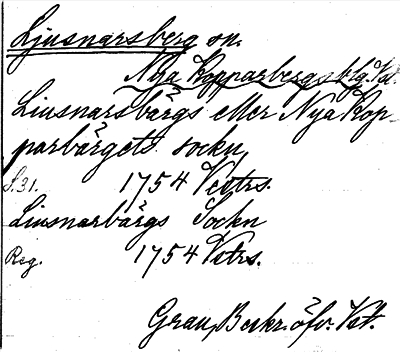 Ljusnarsberg sn.
Nya Kopparbergs blg. Vsl.
Liusnarsbärgs eller Nya Kop-
parbärgets sockn,
S. 31. 1754 Vestrs.
Liusnarbärgs Sockn
Reg. 1754 Vstrs.
Grau, Beskr. öfv. Vst.